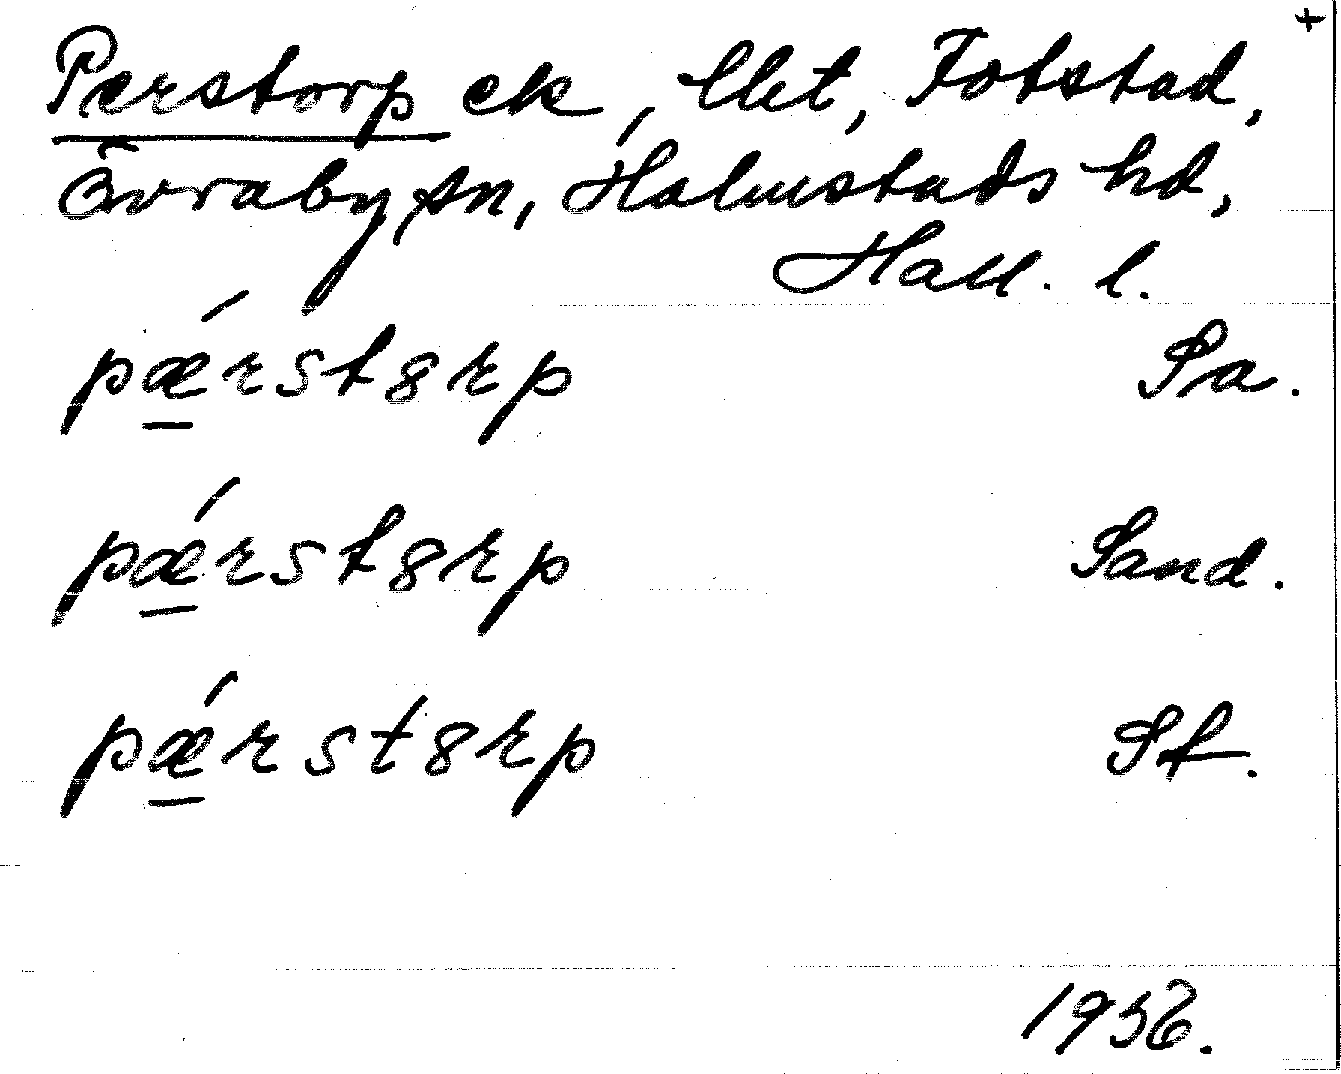 +
Perstorp ek, lht, Fotstad,
Övraby sn, Halmstads hd,
Hall. l.
pǽrst8rp Sa.
pǽrst8rp Sand.
pǽrst8rp St.
1936.